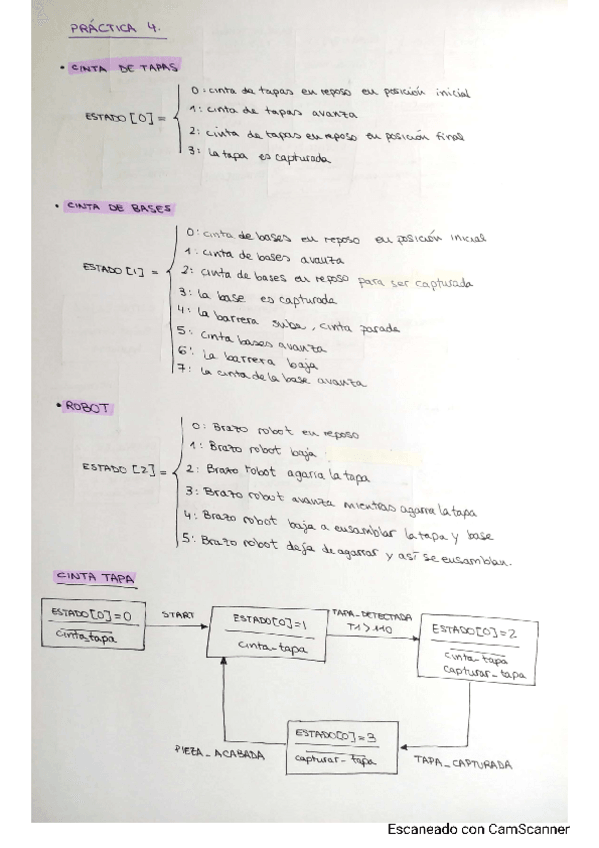 PRÁCTICA 4.
• CINTA DE TAPAS
ESTADO [0] =
0: cinta de tapas en reposo en posición inicial
1: cinta de tapas avanza
2: cinta de tapas en reposo en posición final
3: la tapa es capturada
• CINTA DE BASES
ESTADO [1] =
0: cinta de bases en reposo en posición inicial
1: cinta de bases avanza
2: cinta de bases en reposo para ser capturada
3: la base es capturada
4: la barrera sube, cinta parada
5: cinta bases avanza
6: la barrera baja
7: la cinta de la base avanza
• ROBOT
ESTADO [2] =
0: Brazo robot en reposo
1: Brazo robot baja
2: Brazo robot agarra la tapa
3: Brazo robot avanza mientras agarra la tapa
4: Brazo robot baja a ensamblar la tapa y base
5: Brazo robot deja de agarrar y así se ensamblan.
CINTA TAPA
ESTADO[0]=0
cinta_tapa
START
ESTADO[0]=1
cinta_tapa
TAPA_DETECTADA
T1>110
ESTADO[0]=2
cinta_tapa
capturar_tapa
PIEZA_ACABADA
ESTADO[0]=3
capturar_tapa
TAPA_CAPTURADA
Escaneado con CamScanner